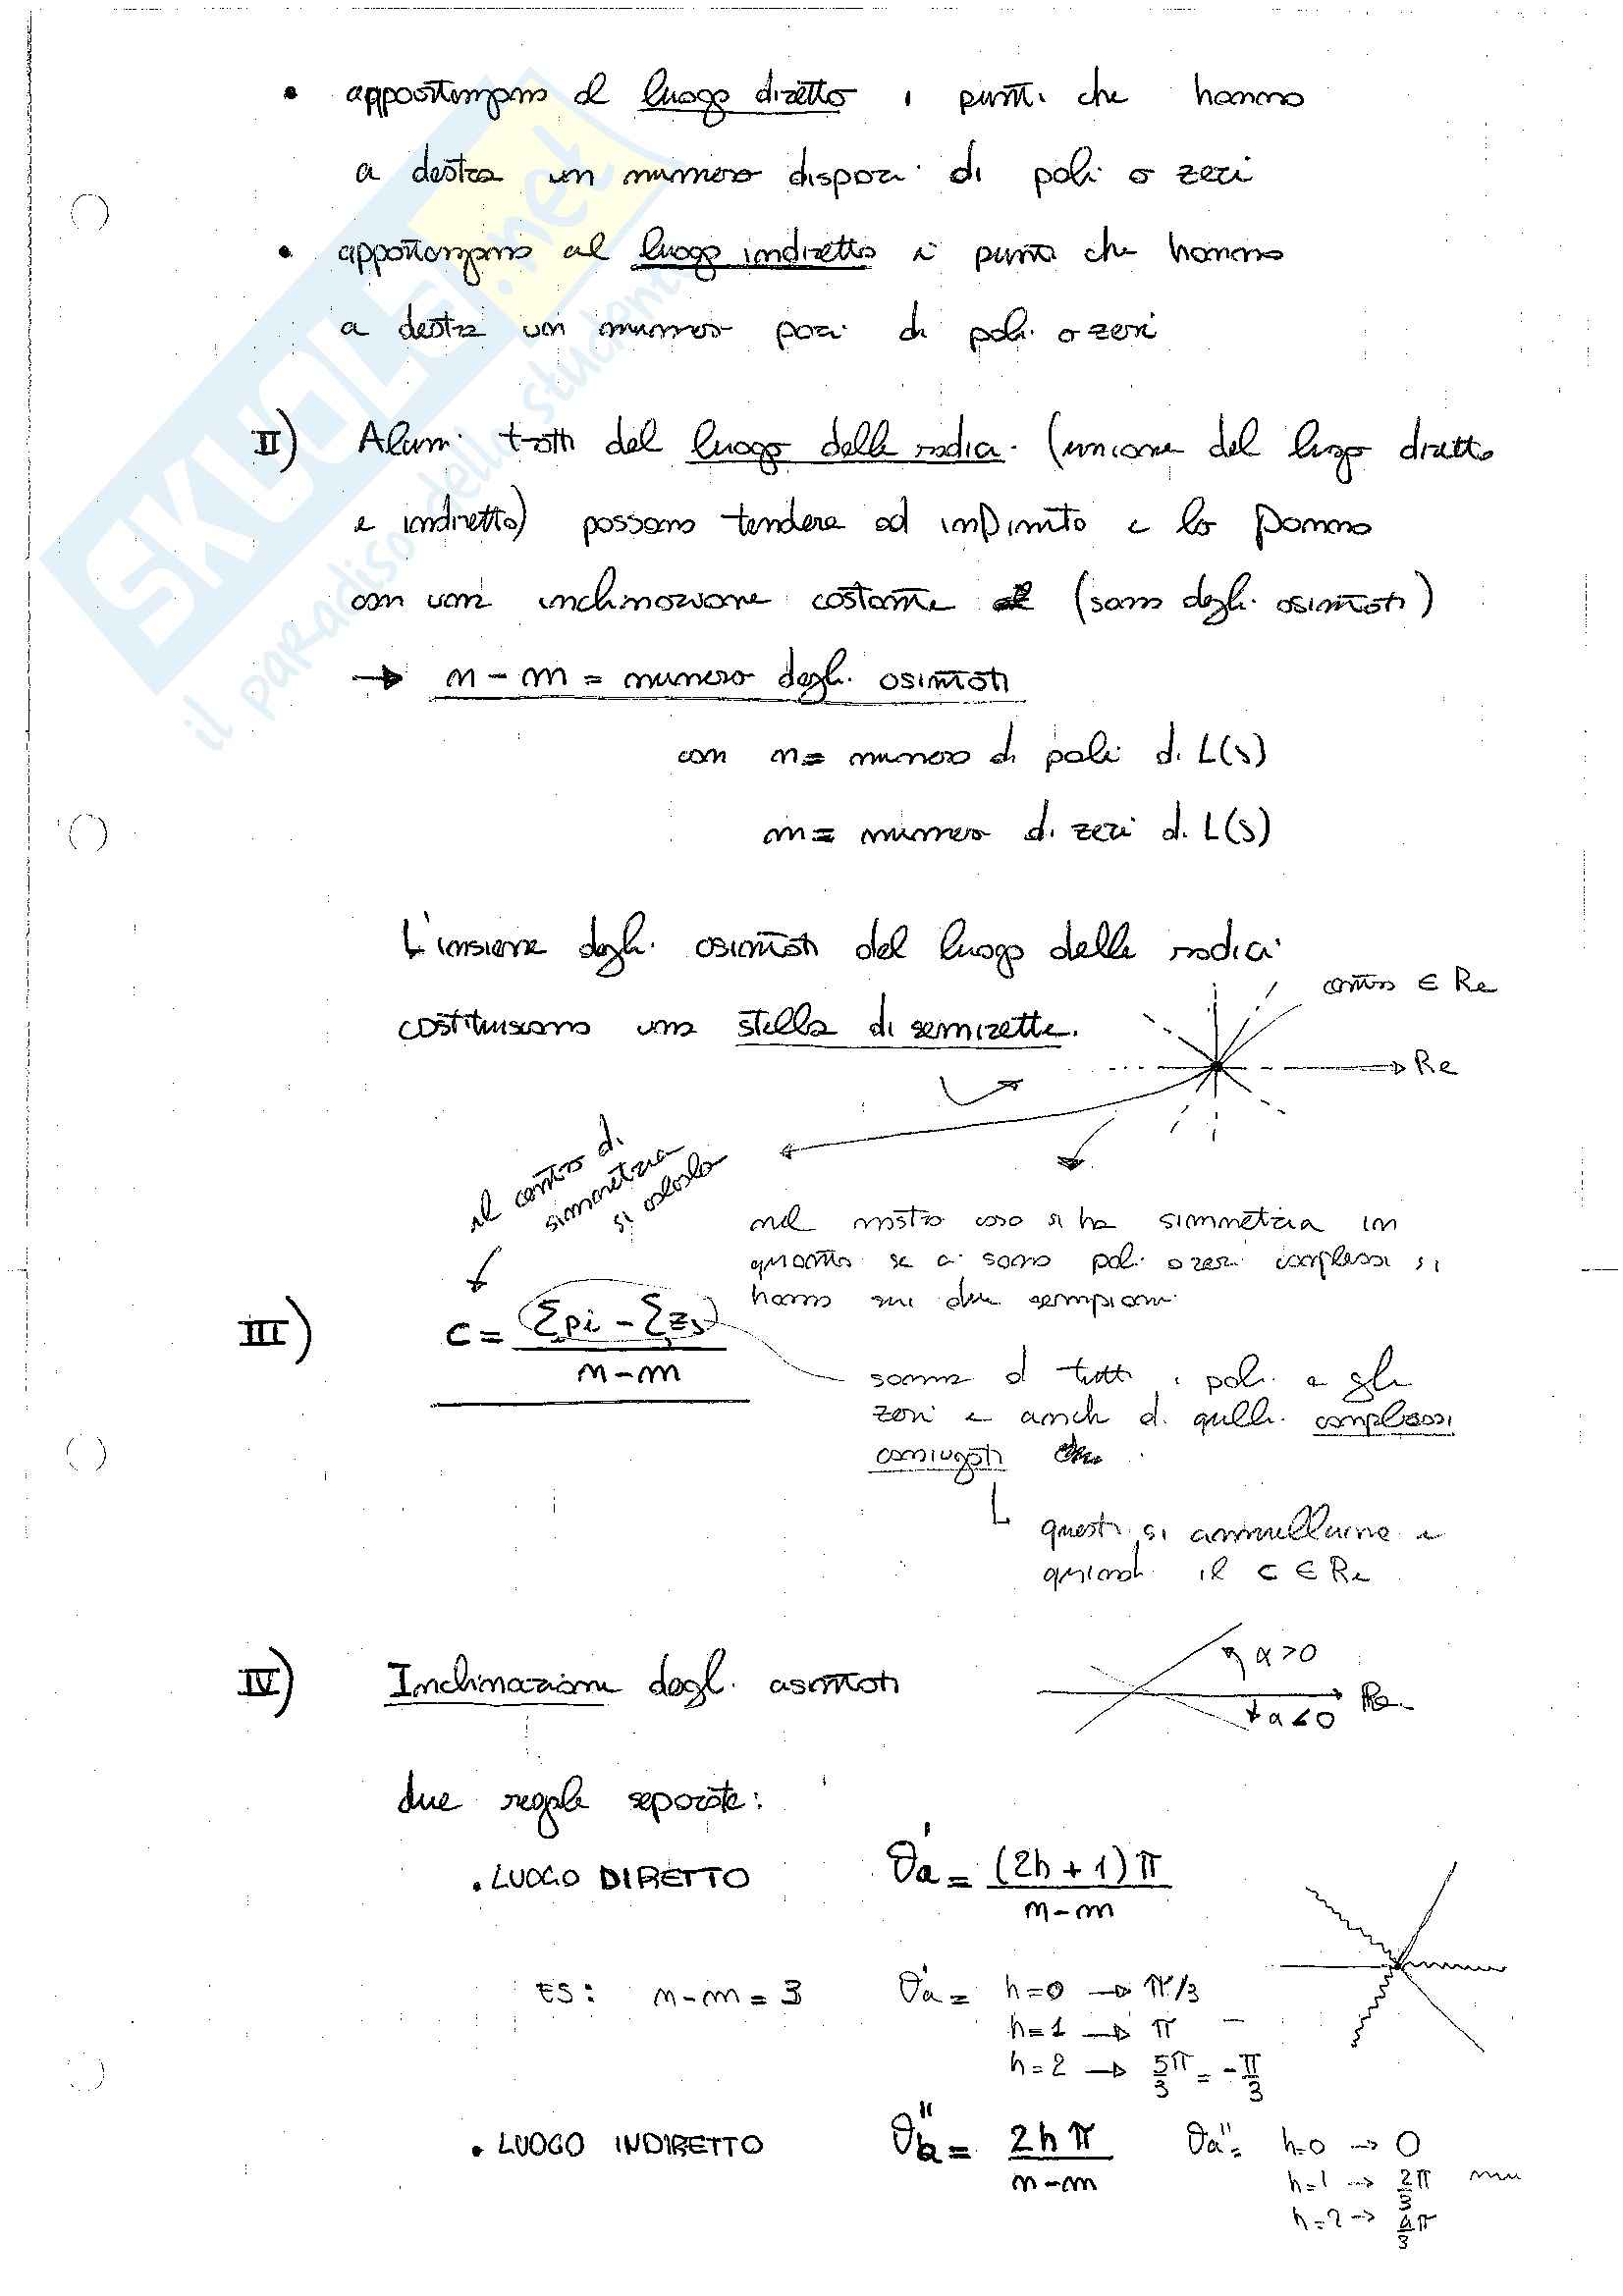 • appartengono al luogo diretto i punti che hanno
a destra un numero dispari di poli o zeri
• appartengono al luogo indiretto i punti che hanno
a destra un numero pari di poli o zeri
II) Alcuni tratti del luogo delle radici (unione del luogo diretto
e indiretto) possono tendere ad infinito e lo fanno
con una inclinazione costante (sono degli asintoti)
→ n - m = numero degli asintoti
con n = numero di poli di L(s)
m = numero di zeri di L(s)
L'insieme degli asintoti del luogo delle radici
centro ∈ Re
costituiscono una stella di semirette.
Re
il centro di
simmetria
si calcola
nel nostro caso si ha simmetria in
quanto se ci sono poli o zeri complessi si
hanno sui due semipiani
III) c = Σpi - Σzj / n-m
somma di tutti i poli e gli
zeri e anche di quelli complessi
coniugati
questi si annullano e
quindi il c ∈ Re
IV) Inclinazione degli asintoti
α>0
Re
α<0
due regole separate:
• LUOGO DIRETTO ϑa' = (2h+1)π / n-m
ES: n-m = 3 ϑa' = h=0 → π/3
h=1 → π
h=2 → 5π/3 = -π/3
• LUOGO INDIRETTO ϑa'' = 2hπ / n-m ϑa'' = h=0 → 0
h=1 → 2π/3
h=2 → 4π/3
SKUOLA.net
il paradiso dello studente